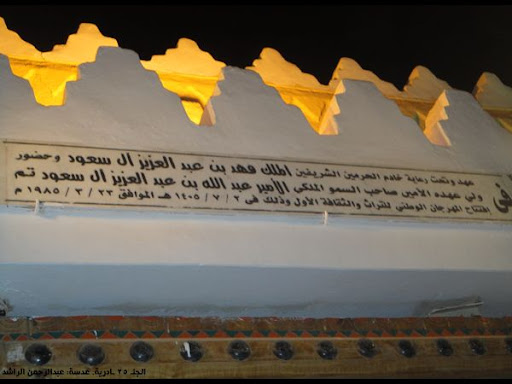 في عهد وتحت رعاية خادم الحرمين الشريفين الملك فهد بن عبد العزيز آل سعود وحضور
ولي عهده الأمين صاحب السمو الملكي الأمير عبد الله بن عبد العزيز آل سعود تم
افتتاح المهرجان الوطني للتراث والثقافة الأول وذلك في ٢ / ٧ / ١٤٠٥ هـ الموافق ٢٣ / ٣ / ١٩٨٥ م
الجنـ ٢٥ ـادرية. عدسة: عبدالرحمن الراشد